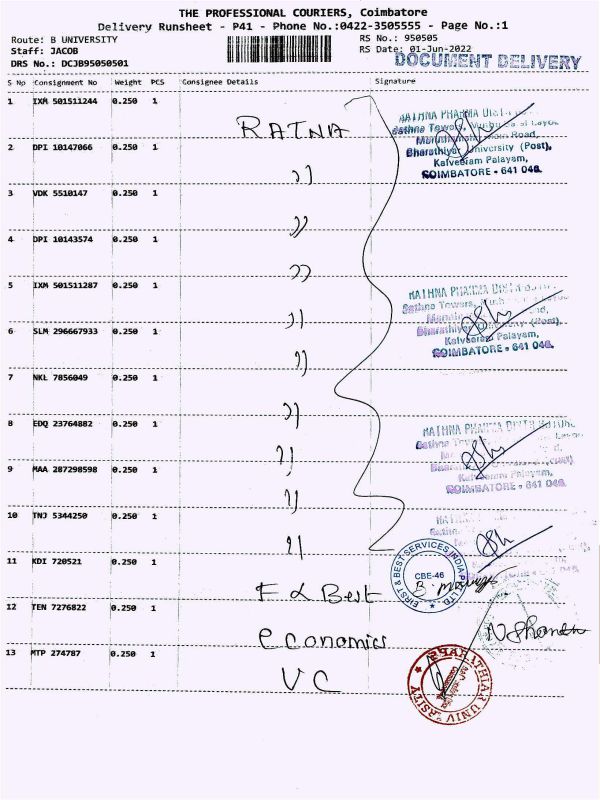 THE PROFESSIONAL COURIERS, Coimbatore
Delivery Runsheet - P41 - Phone No.:0422-3505555 - Page No.:1
Route: B UNIVERSITY
RS No.: 950505
Staff: JACOB
RS Date: 01-Jun-2022
DRS No.: DCJB95050501
DOCUMENT DELIVERY
S No Consignment No Weight PCS Consignee Details Signature
1 IXM 501511244 0.250 1 RATNA
2 DPI 10147066 0.250 1 ))
3 VDK 5510147 0.250 1 ))
4 DPI 10143574 0.250 1 ))
5 IXM 501511287 0.250 1 ))
6 SLM 296667933 0.250 1 ))
7 NKL 7856049 0.250 1 ))
8 EDQ 23764882 0.250 1 ))
9 MAA 287298598 0.250 1 ))
10 TNJ 5344250 0.250 1 ))
11 KDI 720521 0.250 1 F & Best
12 TEN 7276822 0.250 1 economics
13 MTP 274787 0.250 1 VC
RATHNA PHARMA
Sathna Towers,
Road,
Bharathiyar University (Post),
Kalveeram Palayam,
COIMBATORE - 641 046.
RATHNA PHARMA
Sathna Towers,
Bharathiyar University (Post),
Kalveeram Palayam,
COIMBATORE - 641 046.
RATHNA PHARMA DISTRIBUTORS
Sathna
Palayam,
COIMBATORE - 641 046.
FIRST & BEST SERVICES INDIA PVT LTD
CBE-46
BHARATHIAR UNIVERSITY